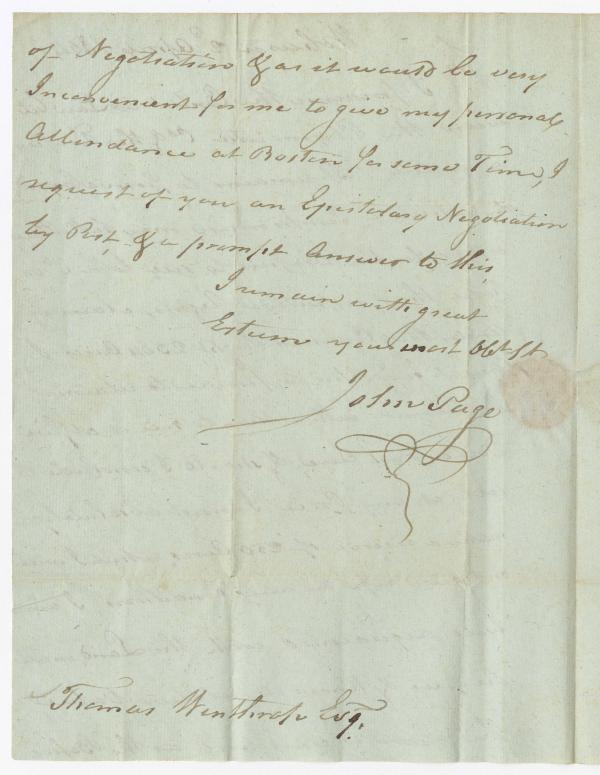 of Negotiation & as it would be very
Inconvenient for me to give my personal
Attendance at Boston for some Time, I
request of you an Epistolary Negotiation
by Post, & a prompt Answer to this,
I remain with great
Esteem your most Obt St
John Page
Thomas Winthrop Esqr.